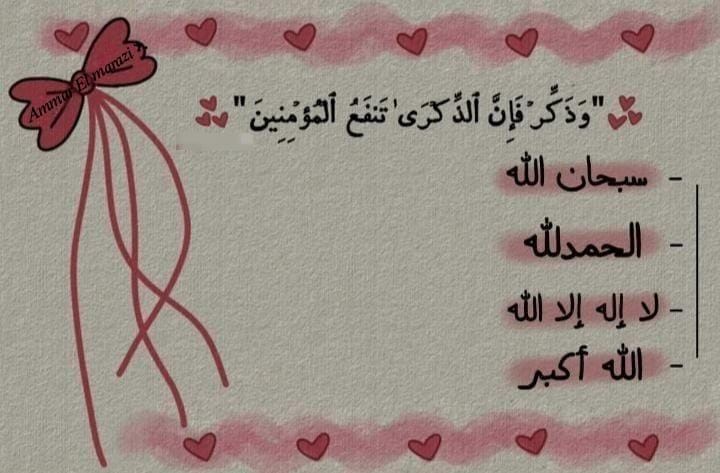 Ammar El marazi
"وَذَكِّرۡ فَإِنَّ ٱلذِّكۡرَىٰ تَنفَعُ ٱلۡمُؤۡمِنِينَ"
- سبحان الله
- الحمدلله
- لا إله إلا الله
- الله أكبر